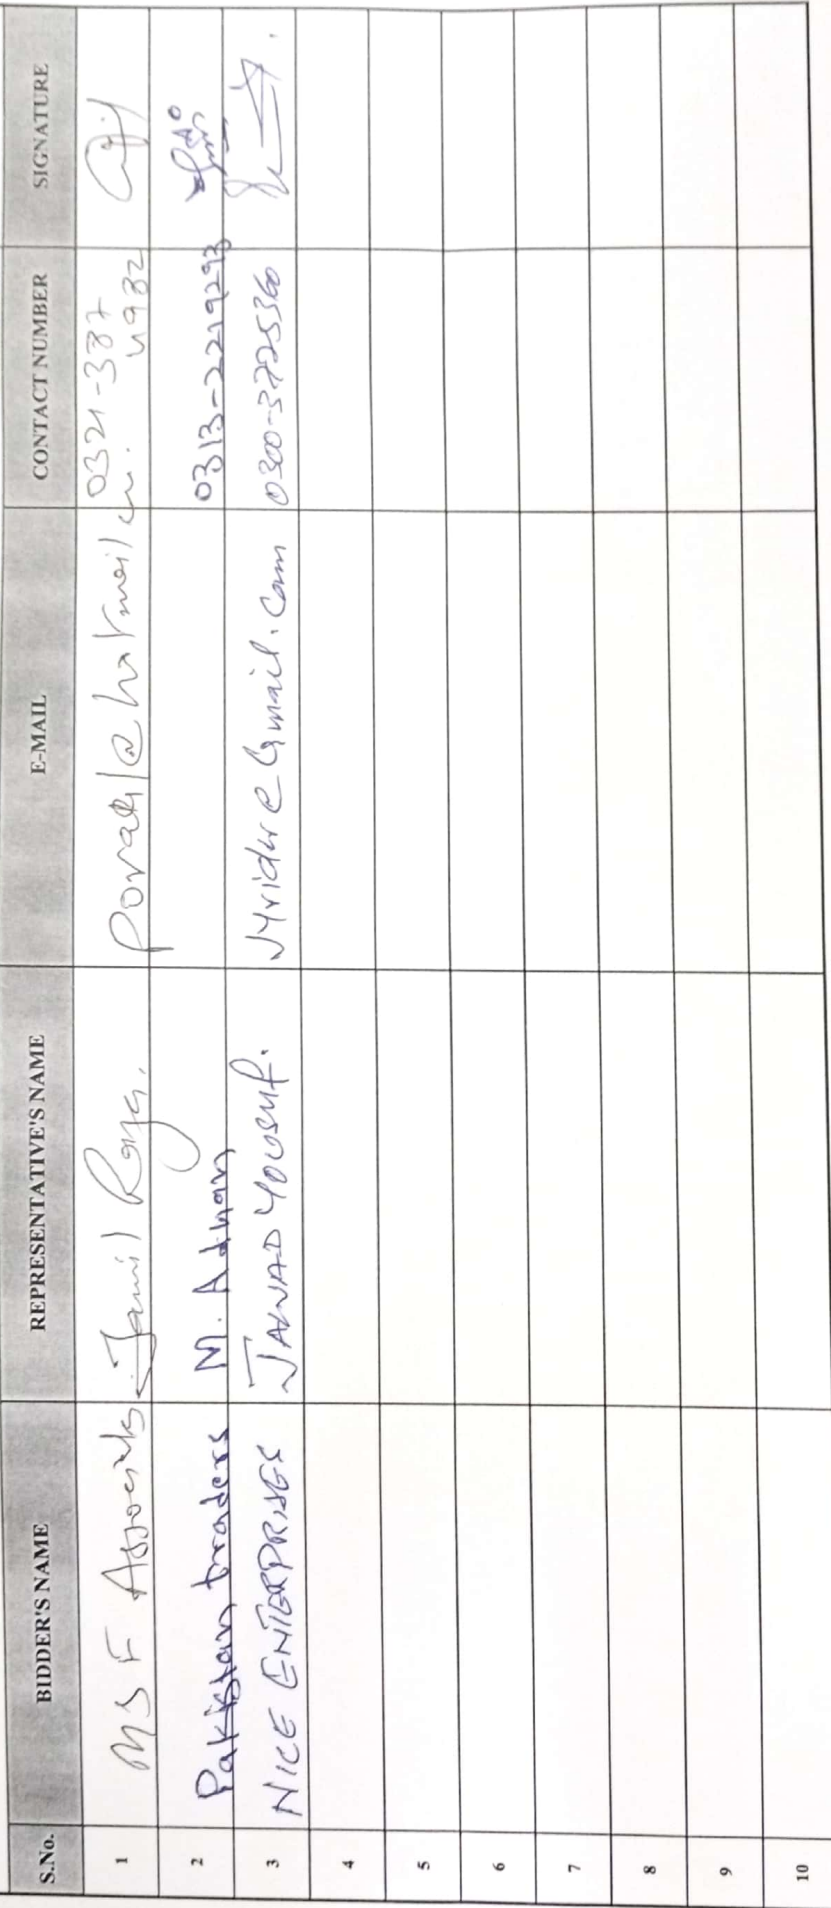 S.No. BIDDER'S NAME REPRESENTATIVE'S NAME E-MAIL CONTACT NUMBER SIGNATURE
1 M S F Associats Jamil Raza. @hotmail 0321-387
cm. 4982
2 Pakistan traders M. Adnan 0313-2219293
3 NICE ENTERPRISES JAWAD YOUSUF. @Gmail.com 0300-3725360
4
5
6
7
8
9
10